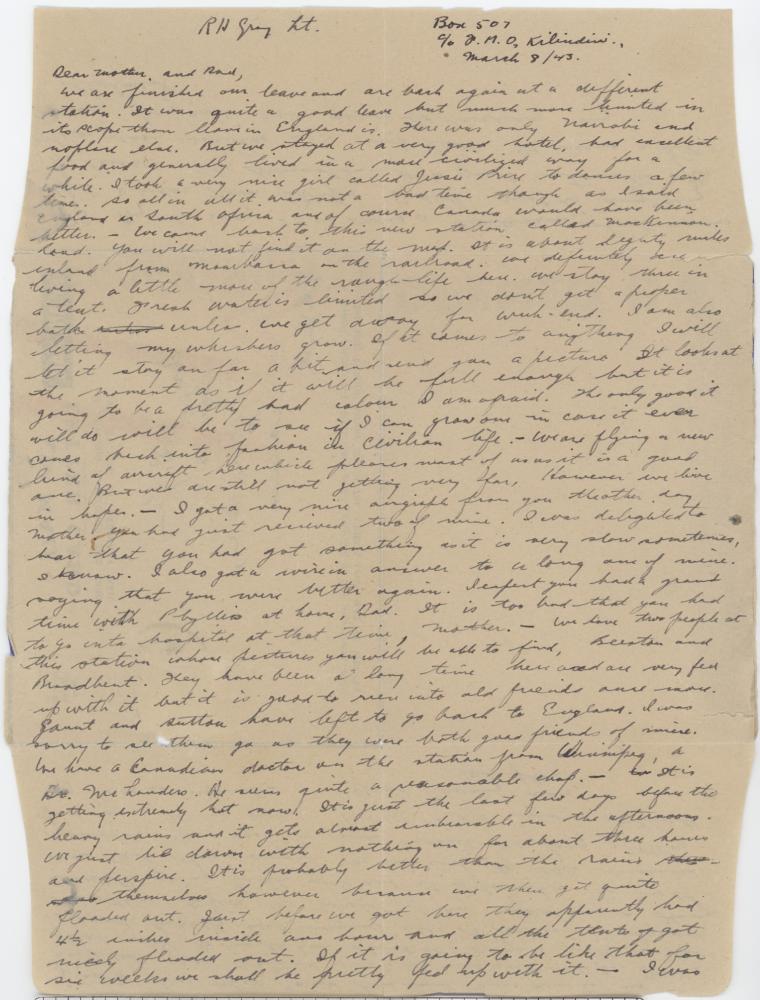 R H Gray Lt.
Box 507
c/o F.M.O, Kilindini.,
March 8/43.
Dear mother and Dad,
We are finished our leave and are back again at a different
station. It was quite a good leave but much more limited in
its scope than leave in England is. There was only Nairobi and
noplace else. But we stayed at a very good hotel, had excellent
food and generally lived in a more civilized way for a
while. I took a very nice girl called Jessie Prire to dances a few
times. So all in all it was not a bad time though as I said
England or South Africa and of course Canada would have been
better. - We came back to this new station called Mackinnon.
Road. You will not find it on the map. It is about eighty miles
inland from Mombassa on the railroad. We definitely are
living a little more of the rough life here. We stay three in
a tent. Fresh water is limited so we don't get a proper
bath unless we get away for week-end. I am also
letting my whiskers grow. If it comes to anything I will
let it stay on for a bit and send you a picture. It looks at
the moment as if it will be full enough but it is
going to be a pretty bad colour I am afraid. The only good it
will do will be to see if I can grow one in case it ever
comes back into fashion in civilian life. - We are flying a new
kind of aircraft here which pleases most of us as it is a good
one. But we are still not getting very far, However we live
in hopes. - I got a very nice airgraph from you the other day
Mother, you had just received two of mine. I was delighted to
hear that you had got something as it is very slow sometimes,
I know. I also got a wire in answer to a long one of mine.
saying that you were better again. I expect you had a grand
time with Phyllis at home, Dad. It is too bad that you had
to go into hospital at that time, Mother. - We have two people at
this station whose pictures you will be able to find, Beeston and
Broadbent. They have been a long time here and are very fed
up with it but it is good to run into old friends once more.
Gaunt and Sutton have left to go back to England. I was
sorry to see them go as they were both good friends of mine.
We have a Canadian doctor on the station from Winnipeg, a
Dr. He seems quite a reasonable chap. - It is
getting extremely hot now. It is just the last few days before the
heavy rains and it gets almost unbearable in the afternoons.
We just lie down with nothing on for about three hours
and perspire. It is probably better than the rains
themselves however because we then get quite
flooded out. Just before we got here they apparently had
4½ inches inside one hour and all the tents got
nicely flooded out. If it is going to be like that for
six weeks we shall be pretty fed up with it. - I was